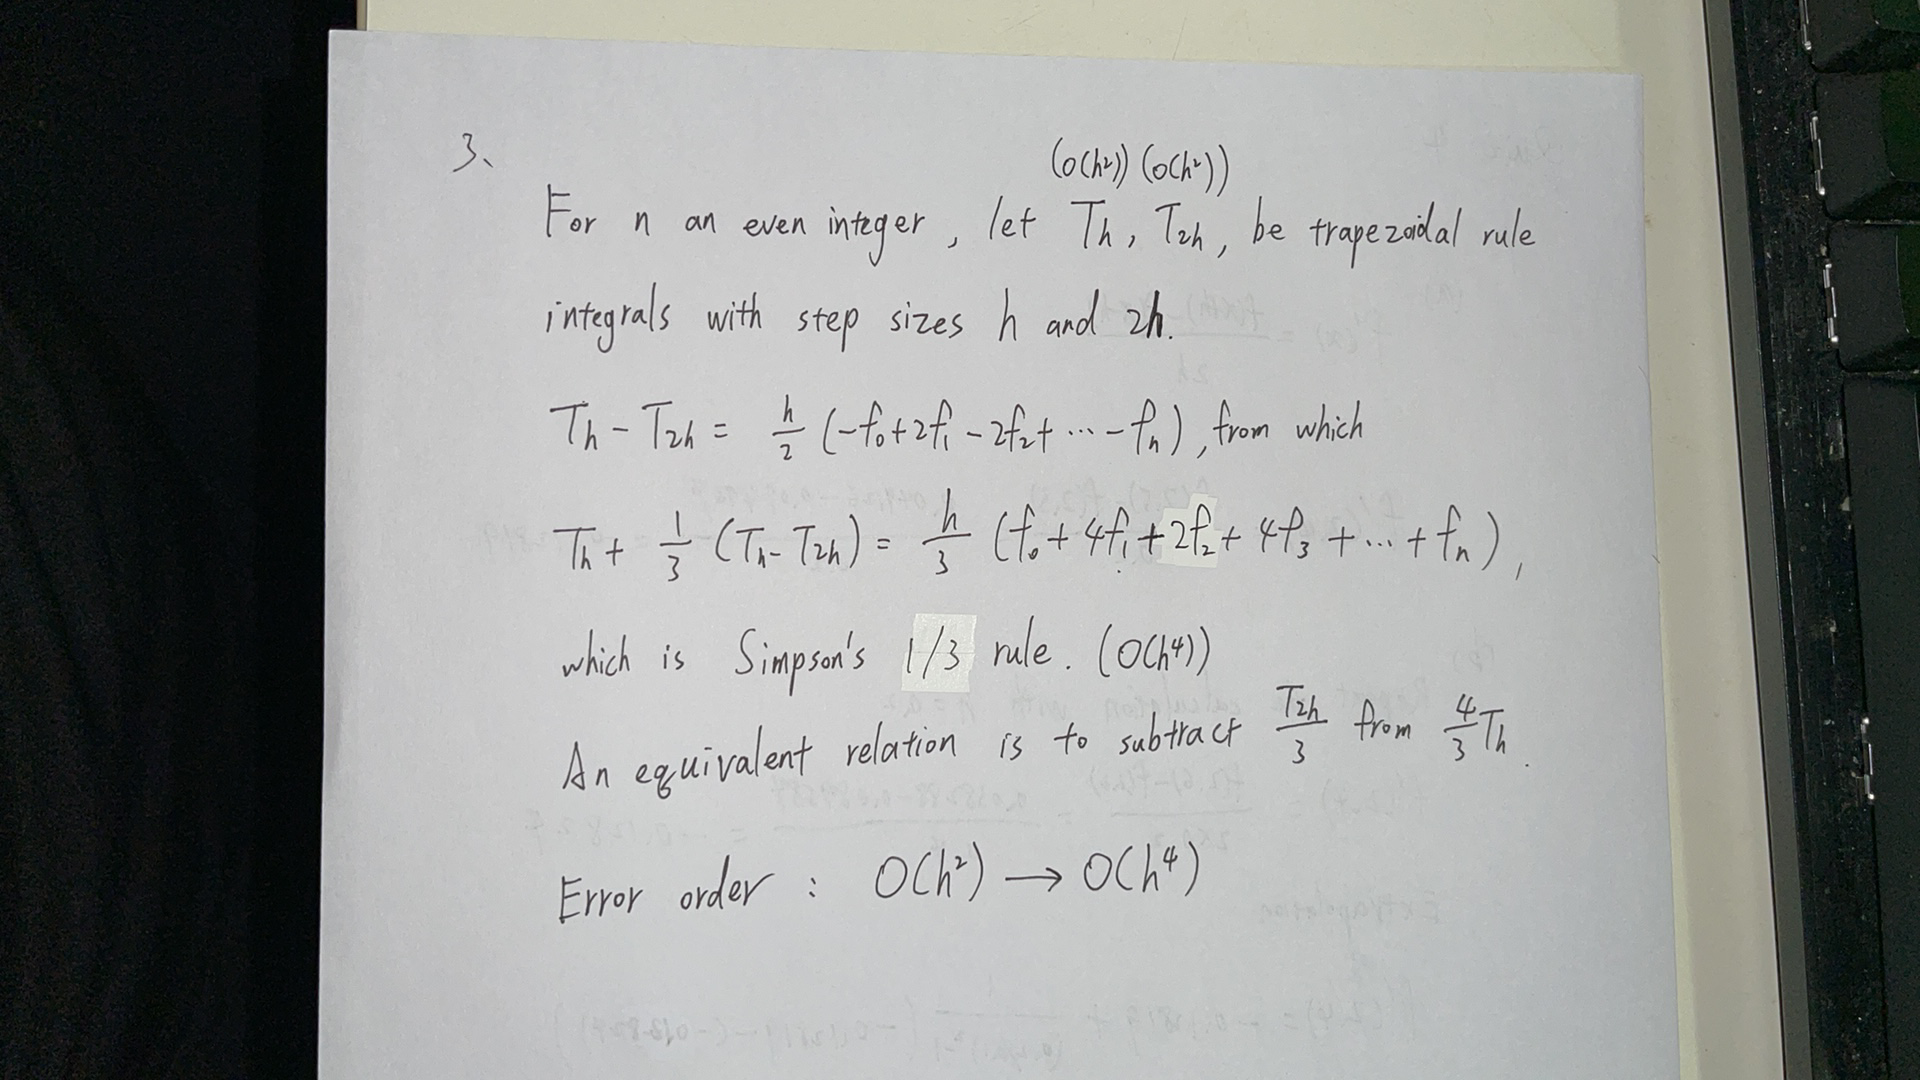 3、
(O(h²)) (O(h²))
For n an even integer, let Th, T2h, be trapezoidal rule
integrals with step sizes h and 2h.
Th - T2h = h/2 (-f₀+2f₁-2f₂+ ⋯ -fn), from which
Th + 1/3 (Th-T2h) = h/3 (f₀+4f₁+2f₂+4f₃+…+fn),
which is Simpson's 1/3 rule. (O(h⁴))
An equivalent relation is to subtract T2h/3 from 4/3 Th.
Error order : O(h²) → O(h⁴)